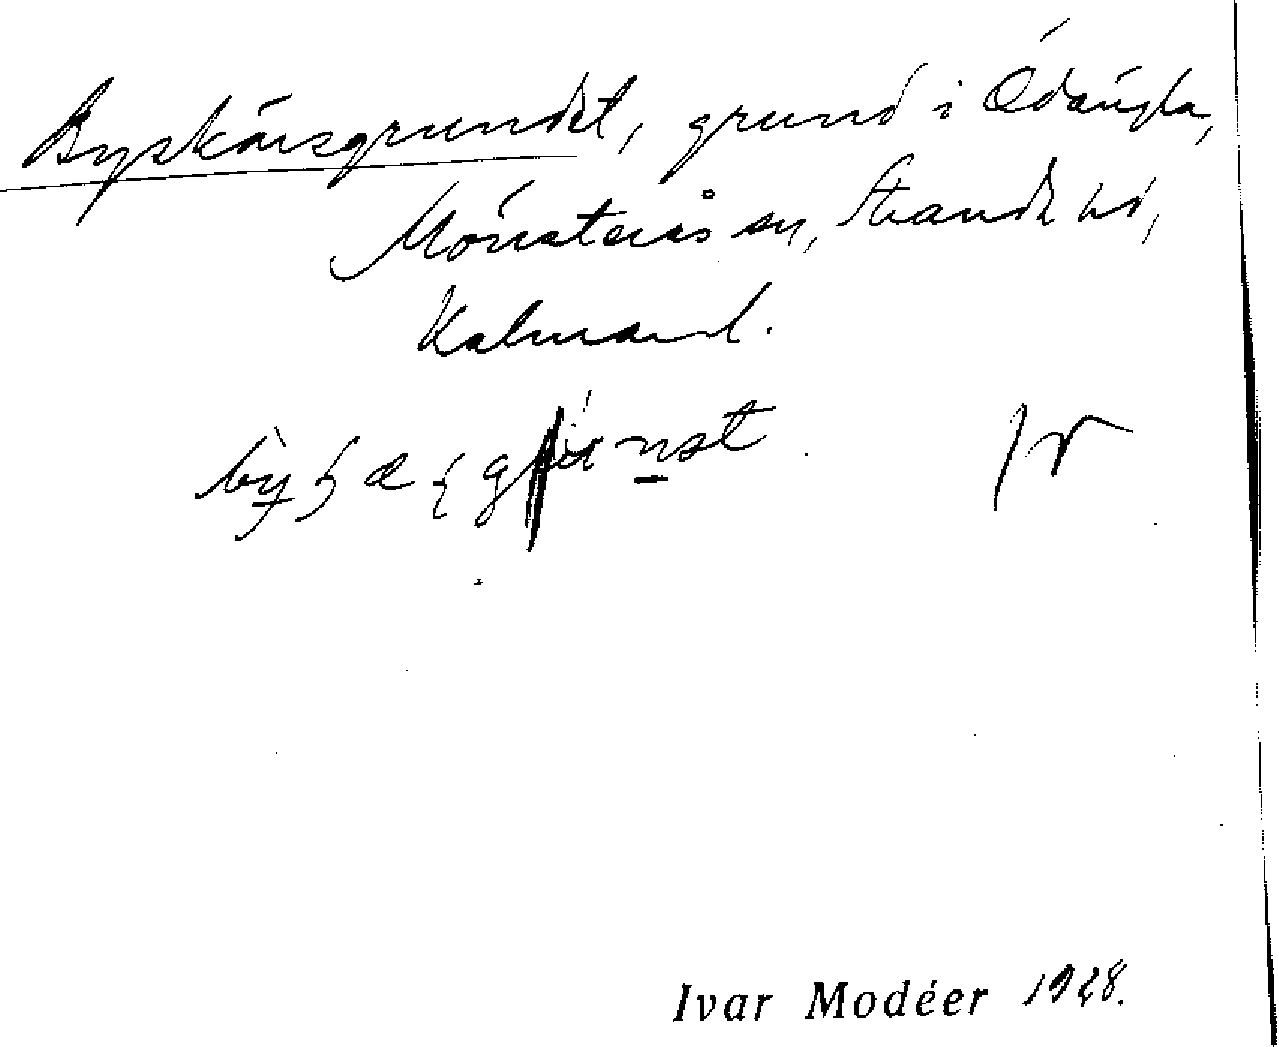 Byskärsgrundet, grund i Ödängla,
Mönsterås sn, Stranda hd,
Kalmar l.
Ivar Modéer 1928.